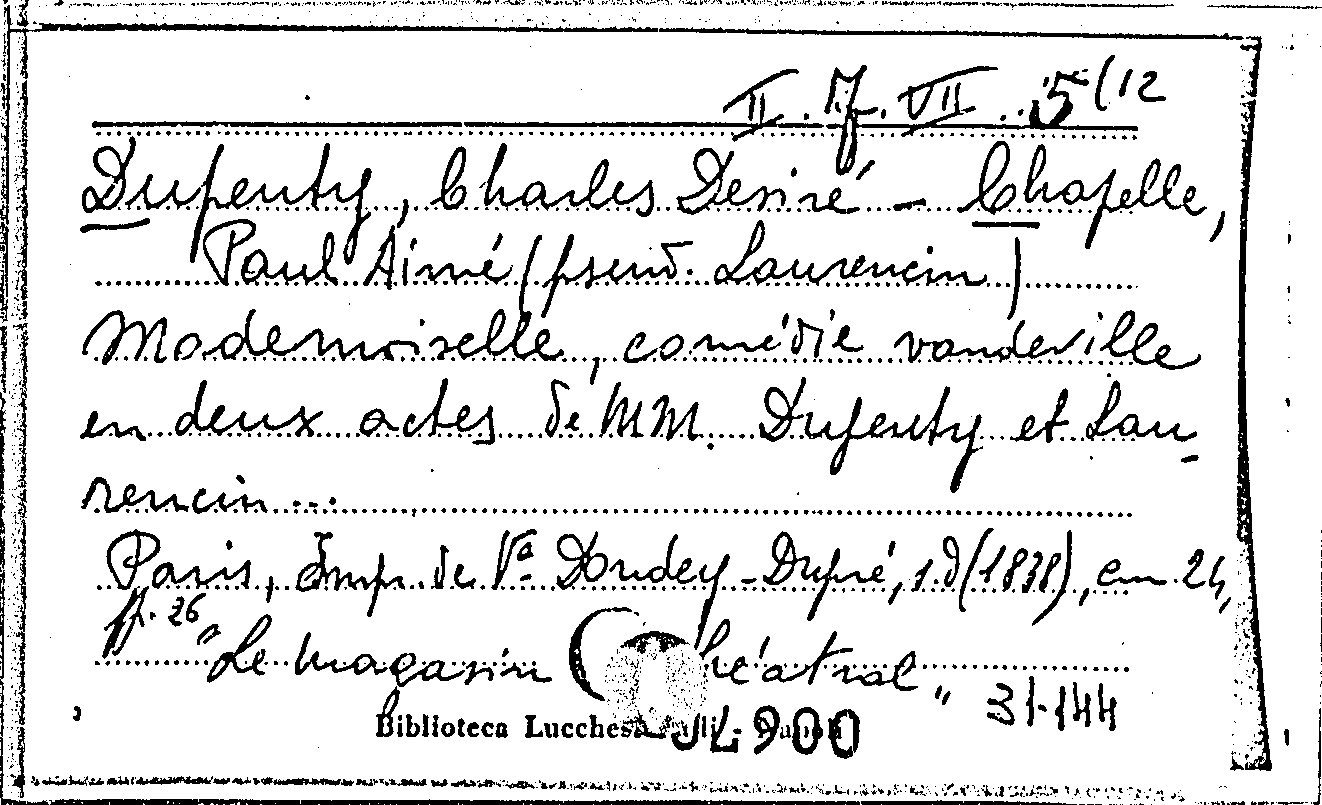 II. 7. VII. 5(12
Dupeuty, Charles Desiré - Chapelle,
Paul Aimé (pseud. Laurencin)
Mademoiselle, comédie vaudeville
en deux actes de MM. Dupeuty et Lau-
rencin...
Paris, Imp. de Vª Dondey-Dupré, s.d (1838), cm 24,
pp. 26
"Le magasin théatral" 31-144
Biblioteca Lucchesi
900